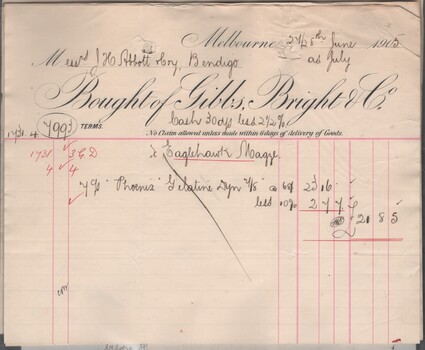 Melbourne 28th June 1905
Messrs J H Abbott & Coy, Bendigo as July
Bought of Gibbs, Bright & Co
7993 TERMS. Cash 30 dys less 2½%
1731.4 No Claim allowed unless made within 6 days of delivery of Goods.
1731 3 C D Eaglehawk Magze.
4 4
7 c/s "Phoenix" Gelatine Dyn @ 68/ 23 16
less 10% 2 7 7
21 8 5